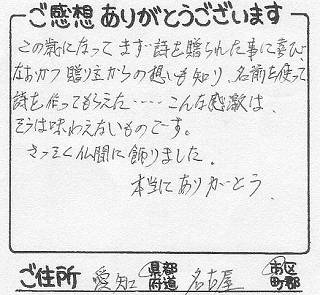 ご感想ありがとうございます
この歳になって まず詩を贈られた事に喜び、
なおかつ贈り主からの想いも知り、名前を使って
詩を作ってもらえた‥‥‥こんな感激は、
そうは味わえないものです。
さっそく仏間に飾りました。
本当にありがとう
ご住所 愛知 県都府道 名古屋 市区町郡